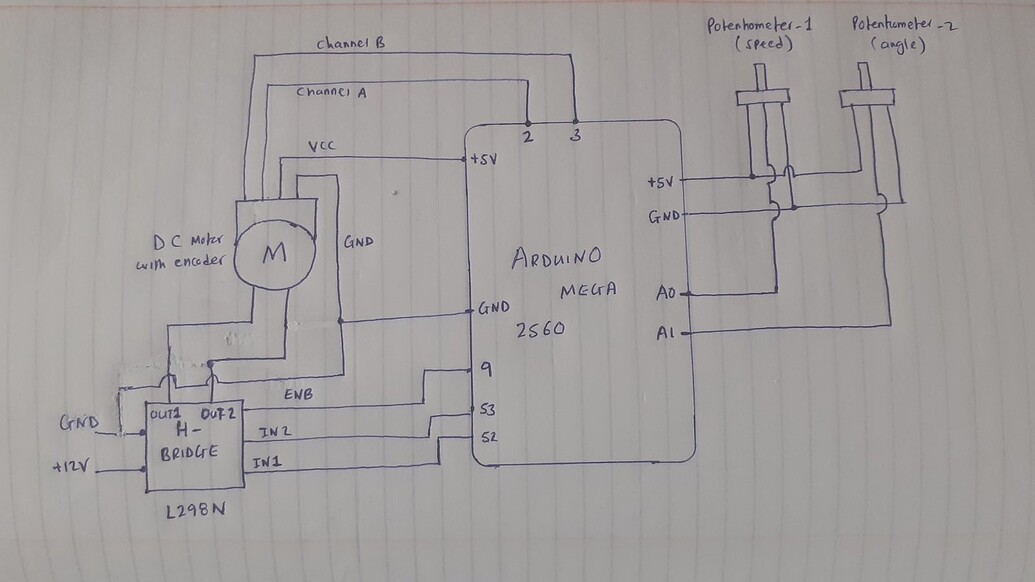 Potentiometer-1
(speed)
Potentiometer-2
(angle)
Channel B
Channel A
2
3
VCC
+5V
+5V
GND
DC Motor
with encoder
M
GND
ARDUINO
MEGA
2560
A0
GND
A1
9
ENB
OUT1
OUT2
53
GND
H-
BRIDGE
IN2
52
+12V
IN1
L298N